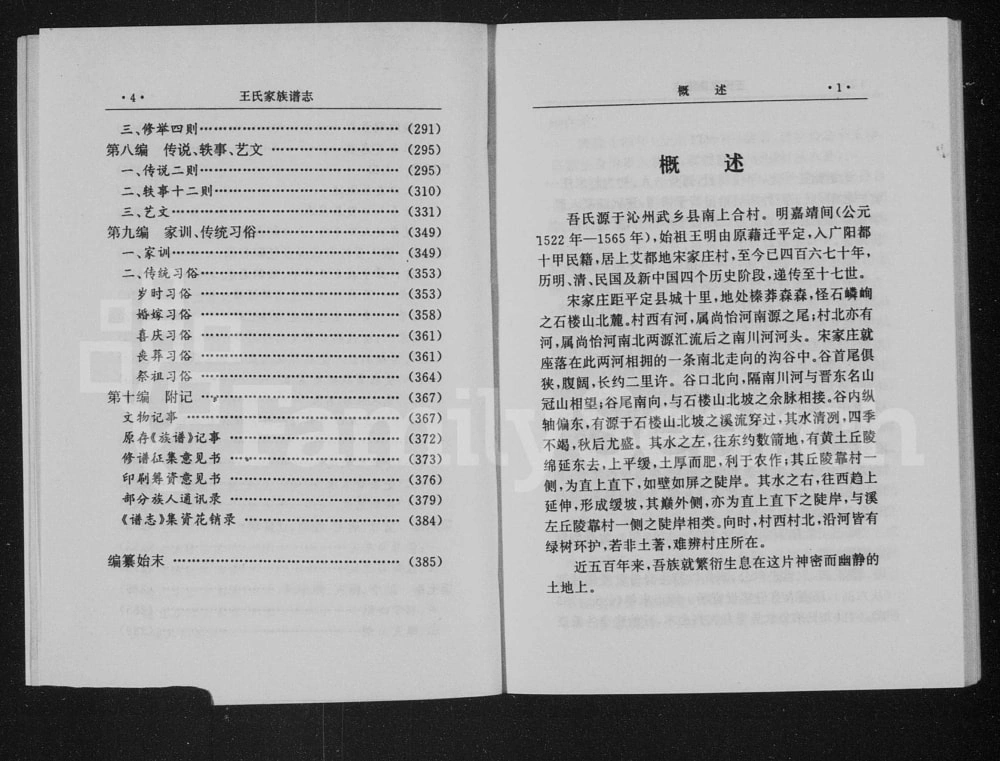 ·4· 王氏家族谱志
三、修举四则……(291)
第八编 传说、轶事、艺文……(295)
一、传说二则……(295)
二、轶事十二则……(310)
三、艺文……(331)
第九编 家训、传统习俗……(349)
一、家训……(349)
二、传统习俗……(353)
岁时习俗……(353)
婚嫁习俗……(358)
喜庆习俗……(361)
丧葬习俗……(361)
祭祖习俗……(364)
第十编 附记……(367)
文物记事……(367)
原存《族谱》记事……(372)
修谱征集意见书……(373)
印刷筹资意见书……(376)
部分族人通讯录……(379)
《谱志》集资花销录……(384)
编纂始末……(385)
概 述 ·1·
概 述
吾氏源于沁州武乡县南上合村。明嘉靖间(公元
1522年—1565年),始祖王明由原藉迁平定,入广阳都
十甲民籍,居上艾都地宋家庄村,至今已四百六七十年,
历明、清、民国及新中国四个历史阶段,递传至十七世。
宋家庄距平定县城十里,地处榛莽森森,怪石嶙峋
之石楼山北麓。村西有河,属尚怡河南源之尾;村北亦有
河,属尚怡河南北两源汇流后之南川河河头。宋家庄就
座落在此两河相拥的一条南北走向的沟谷中。谷首尾俱
狭,腹阔,长约二里许。谷口北向,隔南川河与晋东名山
冠山相望;谷尾南向,与石楼山北坡之余脉相接。谷内纵
轴偏东,有源于石楼山北坡之溪流穿过,其水清冽,四季
不竭,秋后尤盛。其水之左,往东约数箭地,有黄土丘陵
绵延东去,上平缓,土厚而肥,利于农作;其丘陵靠村一
侧,为直上直下,如壁如屏之陡岸。其水之右,往西趋上
延伸,形成缓坡,其巅外侧,亦为直上直下之陡岸,与溪
左丘陵靠村一侧之陡岸相类。向时,村西村北,沿河皆有
绿树环护,若非土著,难辨村庄所在。
近五百年来,吾族就繁衍生息在这片神密而幽静的
土地上。